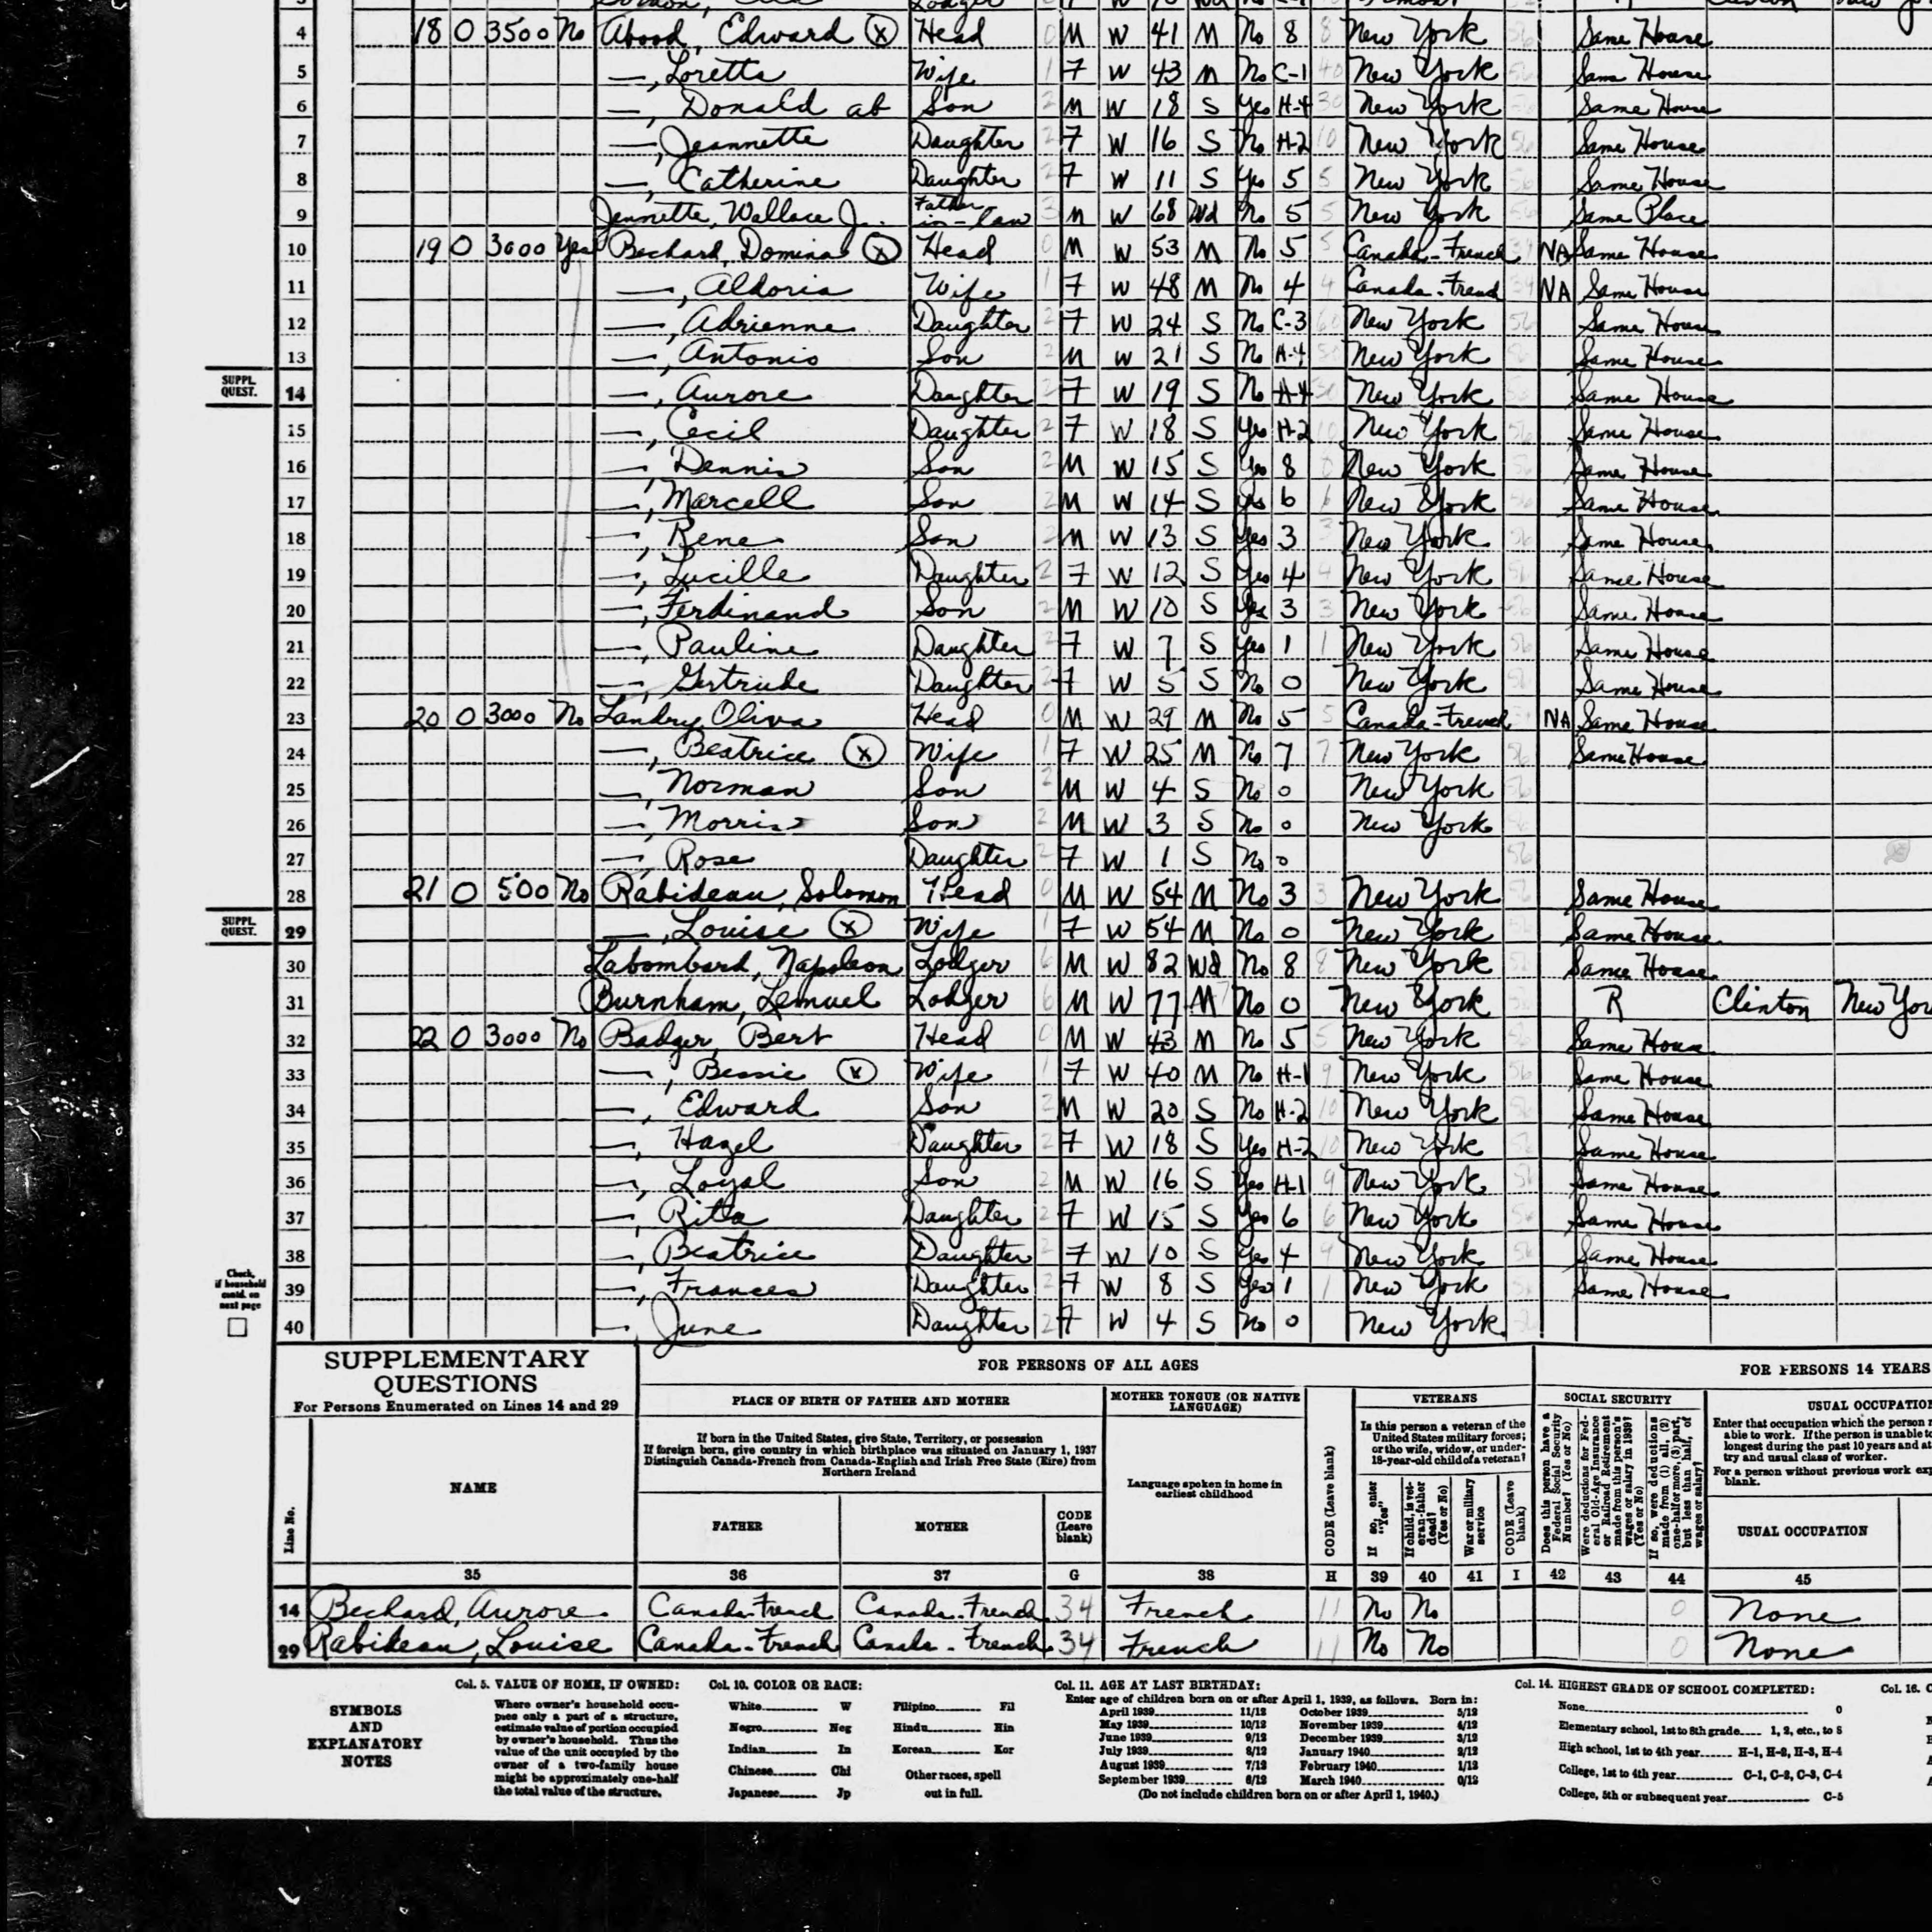 4 18 O 3500 No Abood, Edward Ⓧ Head 0 M W 41 M No 8 8 New York 56 Same House
5 —, Loretta Wife 1 F W 43 M No C-1 40 New York 56 Same House
6 —, Donald ab Son 2 M W 18 S Yes H-4 30 New York 56 Same House
7 —, Jeannette Daughter 2 F W 16 S No H-2 10 New York 56 Same House
8 —, Catherine Daughter 2 F W 11 S Yes 5 5 New York 56 Same House
9 Jennette, Wallace J. Father-in-law 3 M W 68 Wd No 5 5 New York 56 Same Place
10 19 O 3000 Yes Bechard, Dominas Ⓧ Head 0 M W 53 M No 5 5 Canada-French 34 NA Same House
11 —, Aldoria Wife 1 F W 48 M No 4 4 Canada-French 34 NA Same House
12 —, Adrienne Daughter 2 F W 24 S No C-3 60 New York 56 Same House
13 —, Antonio Son 2 M W 21 S No H-4 30 New York 56 Same House
SUPPL. QUEST. 14 —, Aurore Daughter 2 F W 19 S No H-4 30 New York 56 Same House
15 —, Cecil Daughter 2 F W 18 S Yes H-2 10 New York 56 Same House
16 —, Dennis Son 2 M W 15 S Yes 8 8 New York 56 Same House
17 —, Marcell Son 2 M W 14 S Yes 6 6 New York 56 Same House
18 —, Rene Son 2 M W 13 S Yes 3 3 New York 56 Same House
19 —, Lucille Daughter 2 F W 12 S Yes 4 4 New York 56 Same House
20 —, Ferdinand Son 2 M W 10 S Yes 3 3 New York 56 Same House
21 —, Pauline Daughter 2 F W 7 S Yes 1 1 New York 56 Same House
22 —, Gertrude Daughter 2 F W 5 S No 0 New York 56 Same House
23 20 O 3000 No Landry, Oliva Head 0 M W 29 M No 5 5 Canada-French 34 NA Same House
24 —, Beatrice Ⓧ Wife 1 F W 25 M No 7 7 New York 56 Same House
25 —, Norman Son 2 M W 4 S No 0 New York 56
26 —, Morris Son 2 M W 3 S No 0 New York 56
27 —, Rose Daughter 2 F W 1 S No 0 56
28 21 O 500 No Rabideau, Solomon Head 0 M W 54 M No 3 3 New York 56 Same House
SUPPL. QUEST. 29 —, Louise Ⓧ Wife 1 F W 54 M No 0 New York 56 Same House
30 Labombard, Napoleon Lodger 6 M W 82 Wd No 8 8 New York 56 Same House
31 Burnham, Lemuel Lodger 6 M W 77 M 7 No 0 New York 56 R Clinton New Yor
32 22 O 3000 No Badger, Bert Head 0 M W 43 M No 5 5 New York 56 Same House
33 —, Bessie Ⓧ Wife 1 F W 40 M No H-1 9 New York 56 Same House
34 —, Edward Son 2 M W 20 S No H-2 10 New York 56 Same House
35 —, Hazel Daughter 2 F W 18 S Yes H-2 10 New York 56 Same House
36 —, Loyal Son 2 M W 16 S Yes H-1 9 New York 56 Same House
37 —, Ritta Daughter 2 F W 15 S Yes 6 6 New York 56 Same House
38 —, Beatrice Daughter 2 F W 10 S Yes 4 4 New York 56 Same House
39 —, Frances Daughter 2 F W 8 S Yes 1 1 New York 56 Same House
40 — June Daughter 2 F W 4 S No 0 New York 56
Check, if household contd. on next page
SUPPLEMENTARY QUESTIONS
For Persons Enumerated on Lines 14 and 29
FOR PERSONS OF ALL AGES
FOR PERSONS 14 YEARS
PLACE OF BIRTH OF FATHER AND MOTHER
MOTHER TONGUE (OR NATIVE LANGUAGE)
VETERANS
SOCIAL SECURITY
USUAL OCCUPATIO
If born in the United States, give State, Territory, or possession
If foreign born, give country in which birthplace was situated on January 1, 1937
Distinguish Canada-French from Canada-English and Irish Free State (Eire) from Northern Ireland
Language spoken in home in earliest childhood
CODE (Leave blank)
Is this person a veteran of the United States military forces; or the wife, widow, or under-18-year-old child of a veteran?
If so, enter "Yes"
If child, is veteran-father dead? (Yes or No)
War or military service
CODE (Leave blank)
Does this person have a Federal Social Security Number? (Yes or No)
Were deductions for Federal Old-Age Insurance or Railroad Retirement made from this person's wages or salary in 1939? (Yes or No)
If so, were deductions made from (1) all, (2) one-half or more, (3) part, but less than half, of wages or salary?
Enter that occupation which the person
able to work. If the person is unable to
longest during the past 10 years and at
try and usual class of worker.
For a person without previous work exp
blank.
Line No.
NAME
FATHER
MOTHER
CODE (Leave blank)
USUAL OCCUPATION
35 36 37 G 38 H 39 40 41 I 42 43 44 45
14 Bechard, Aurore Canada-French Canada-French 34 French 11 No No 0 None
29 Rabideau, Louise Canada-French Canada-French 34 French 11 No No 0 None
SYMBOLS AND EXPLANATORY NOTES
Col. 5. VALUE OF HOME, IF OWNED:
Where owner's household occupies only a part of a structure, estimate value of portion occupied by owner's household. Thus the value of the unit occupied by the owner of a two-family house might be approximately one-half the total value of the structure.
Col. 10. COLOR OR RACE:
White W Filipino Fil
Negro Neg Hindu Hin
Indian In Korean Kor
Chinese Chi Other races, spell
Japanese Jp out in full.
Col. 11. AGE AT LAST BIRTHDAY:
Enter age of children born on or after April 1, 1939, as follows. Born in:
April 1939 11/12 October 1939 5/12
May 1939 10/12 November 1939 4/12
June 1939 9/12 December 1939 3/12
July 1939 8/12 January 1940 2/12
August 1939 7/12 February 1940 1/12
September 1939 6/12 March 1940 0/12
(Do not include children born on or after April 1, 1940.)
Col. 14. HIGHEST GRADE OF SCHOOL COMPLETED:
None 0
Elementary school, 1st to 8th grade 1, 2, etc., to 8
High school, 1st to 4th year H-1, H-2, H-3, H-4
College, 1st to 4th year C-1, C-2, C-3, C-4
College, 5th or subsequent year C-5
Col. 16. C